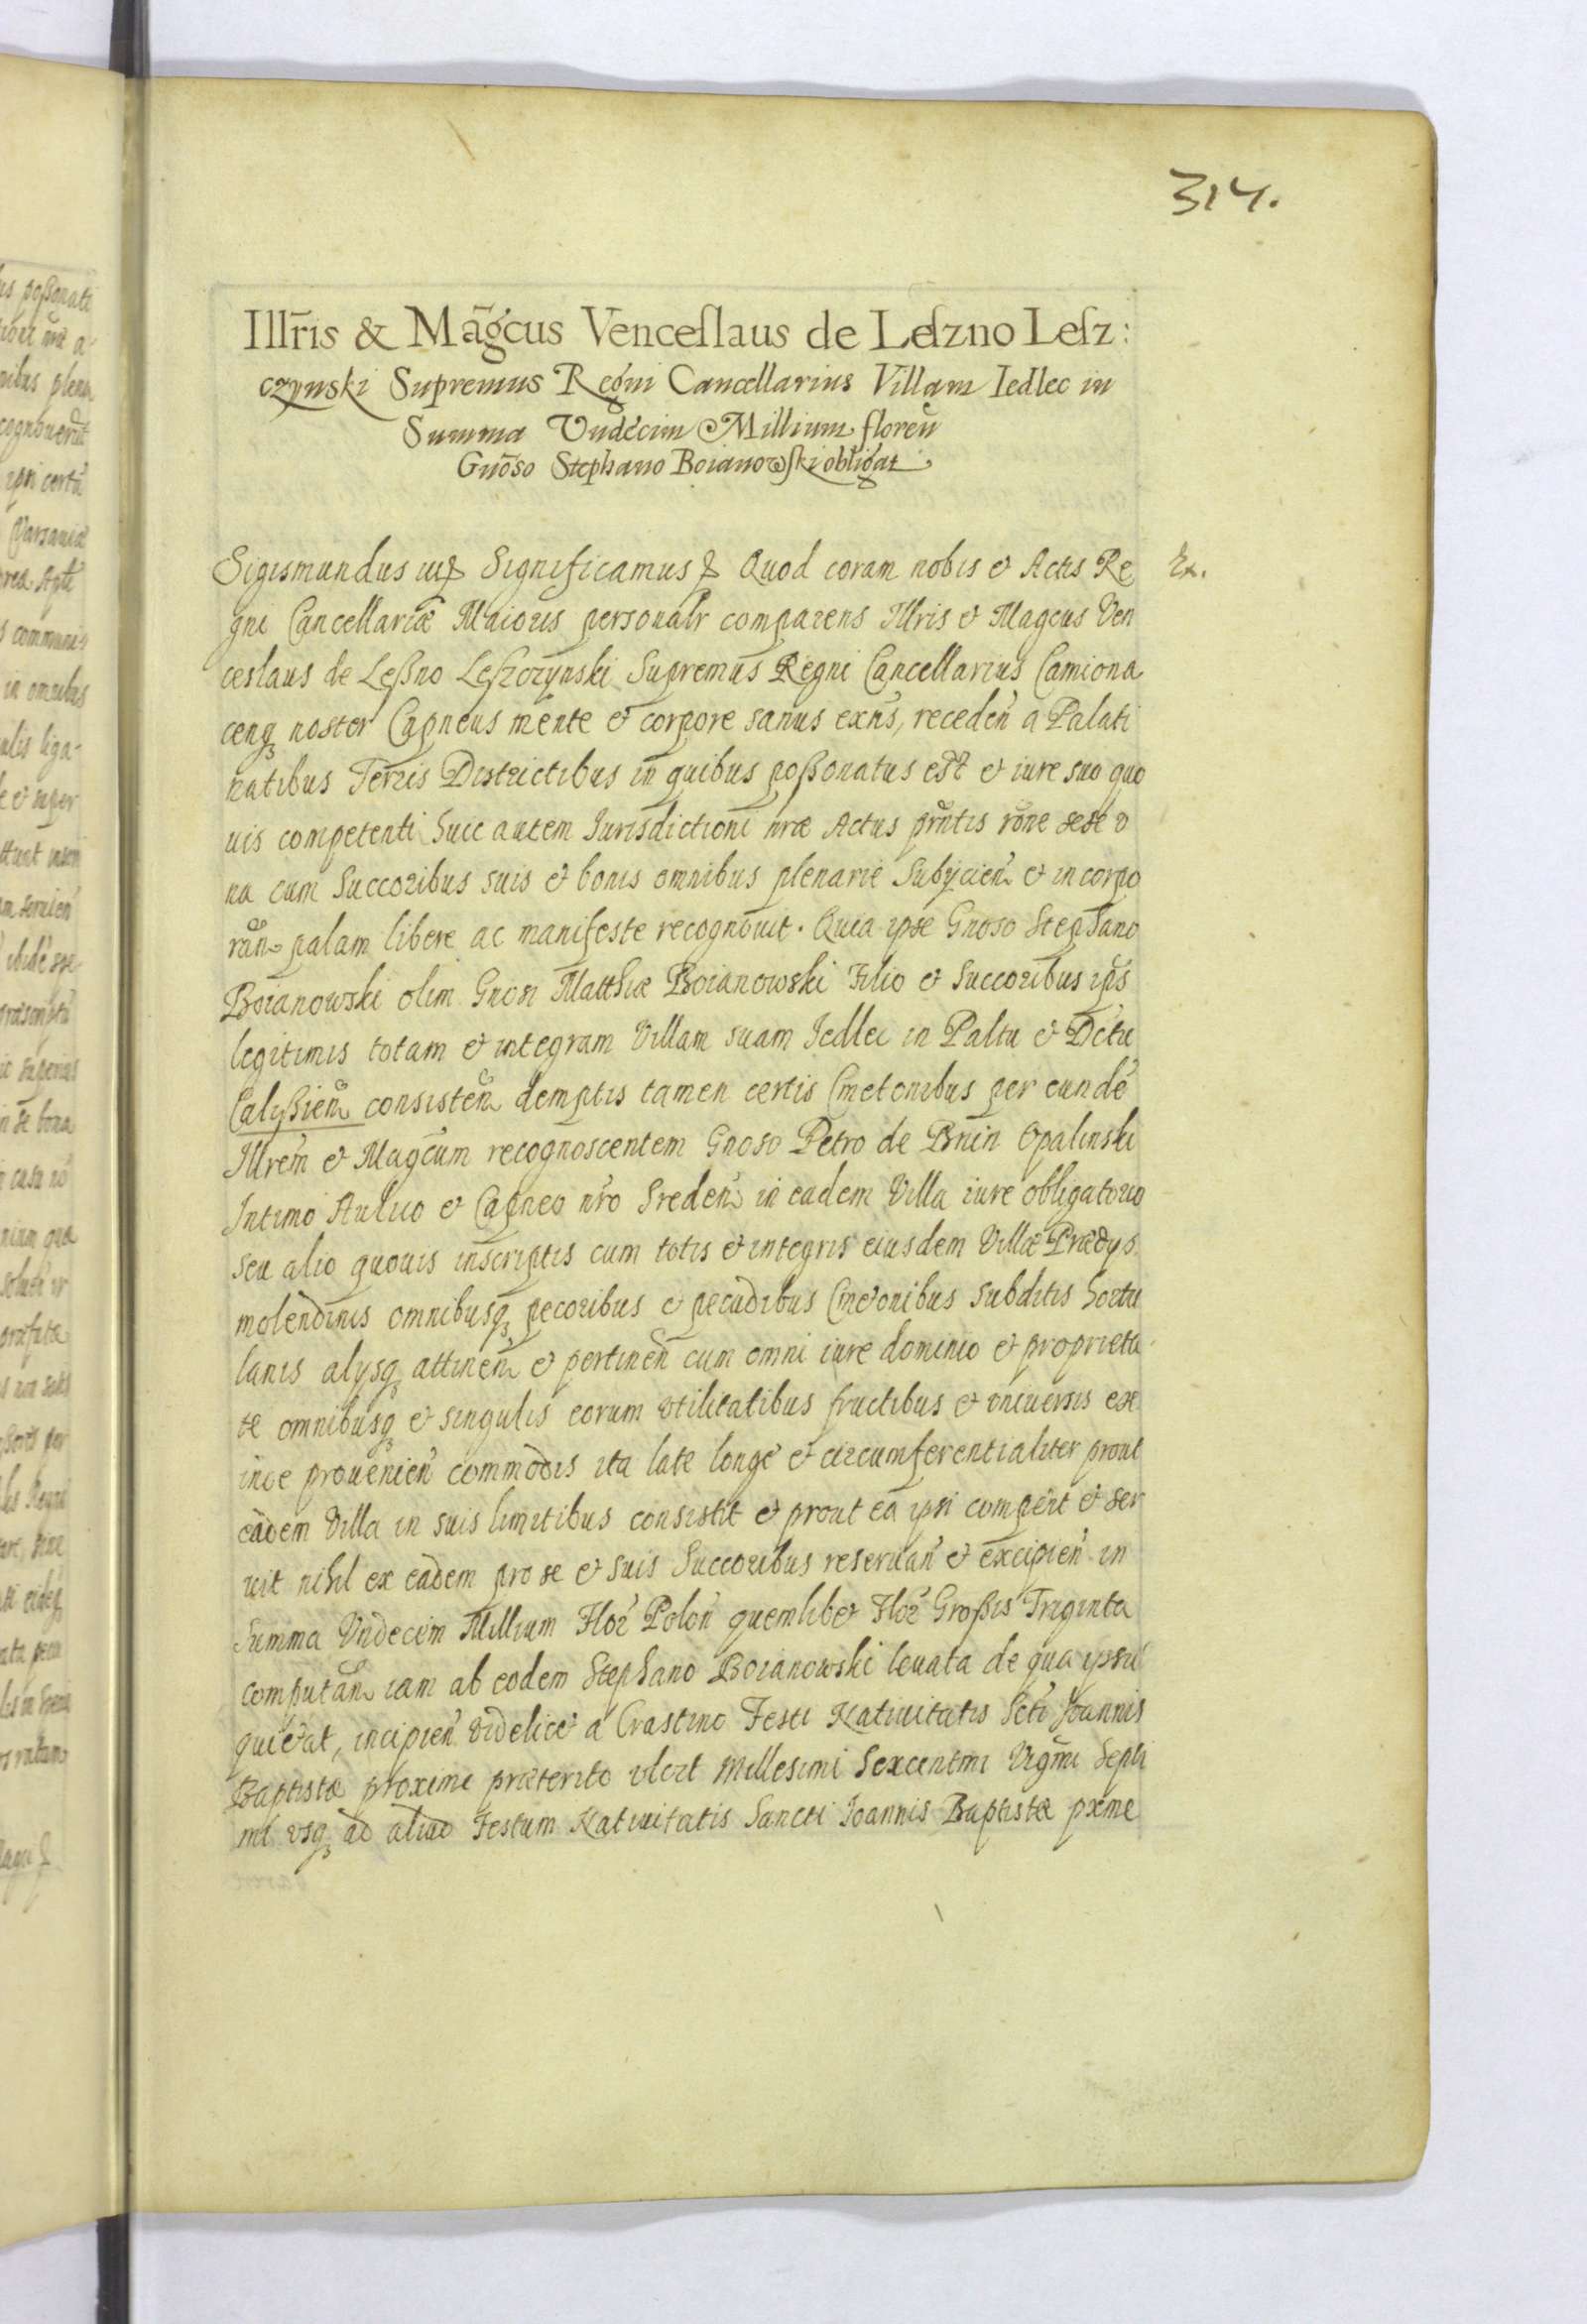 314.
Illr̃is & Mãgcus Venceſlaus de Leſzno Leſz:
czynski Supremus Regni Cancellarius Villam Iedlec in
Summa Vndecim Millium floreñ
Gnõso Stephano Boianowſki obligat
Sigismundus iiiꝭ Significamusꝭ Quod coram nobis et Actis Re
Ex.
gni Cancellariæ Maioris personalr comparens Illris et Magcus Ven
ceslaus de Leßno Leſzczynski Supremus Regni Cancellarius Camiona
cenq̃ noster Capneus mente et corpore sanus exñs, receden̄ a Palati
natibus Terris Districtibus in quibus poßonatus est et iure suo quo
uis competenti huic autem Iurisdictioni nræ Actus pr̃ntis r̃one sese v
na cum Succoribus suis et bonis omnibus plenarie Subijcien̄ et incorpo
ran̄ palam libere ac manifeste recognouit. Quia ipse Gnoso Stephano
Boianowski olim Gnosi Matthiæ Boianowski Filio et Succoribus ip̃s
legitimis totam et integram Villam suam Iedlec in Paltu et Dctu
Calyßien̄ consisten̄ demptis tamen certis Cmetonibus per eundẽ
Illrem et Magcum recognoscentem Gnoso Petro de Bnin Opalinski
Intimo Aulico et Capneo nr̃o Sreden̄ in eadem Villa iure obligatorio
seu alio quouis inscriptis cum totis et integris eiusdem Villæ Prædys
molendinis omnibusq̃ pecoribus et pecudibus Cmetonibus Subditis hortu
lanis alysq̃ attinen̄ et pertinen̄ cum omni iure dominio et proprieta
te omnibusq̃ et singulis eorum vtilitatibus fructibus et vniuersis ex
inde prouenien̄ commodis ita late longe et circumferentialiter prout
eadem Villa in suis limitibus consistit et prout ea ipsi compètit et ser
uit nihl ex eadem pro se et suis Succoribus reseruan̄ et excipien̄ in
Summa Vndecim Millium Flor̃ Polon̄ quemlibet Flor̃ Großis Triginta
computan̄ iam ab eodem Stephano Boianowski leuata de qua ipsũ
quietat, incipien̄ videlicet a Crastino Festi Natiuitatis Scti Ioannis
Baptistæ proxime præterito vlt Millesimi Sexcentmi Vigmi Septi
mi vsq̃ ad aliud Festum Natiuitatis Sancti Ioannis Baptistæ pxme